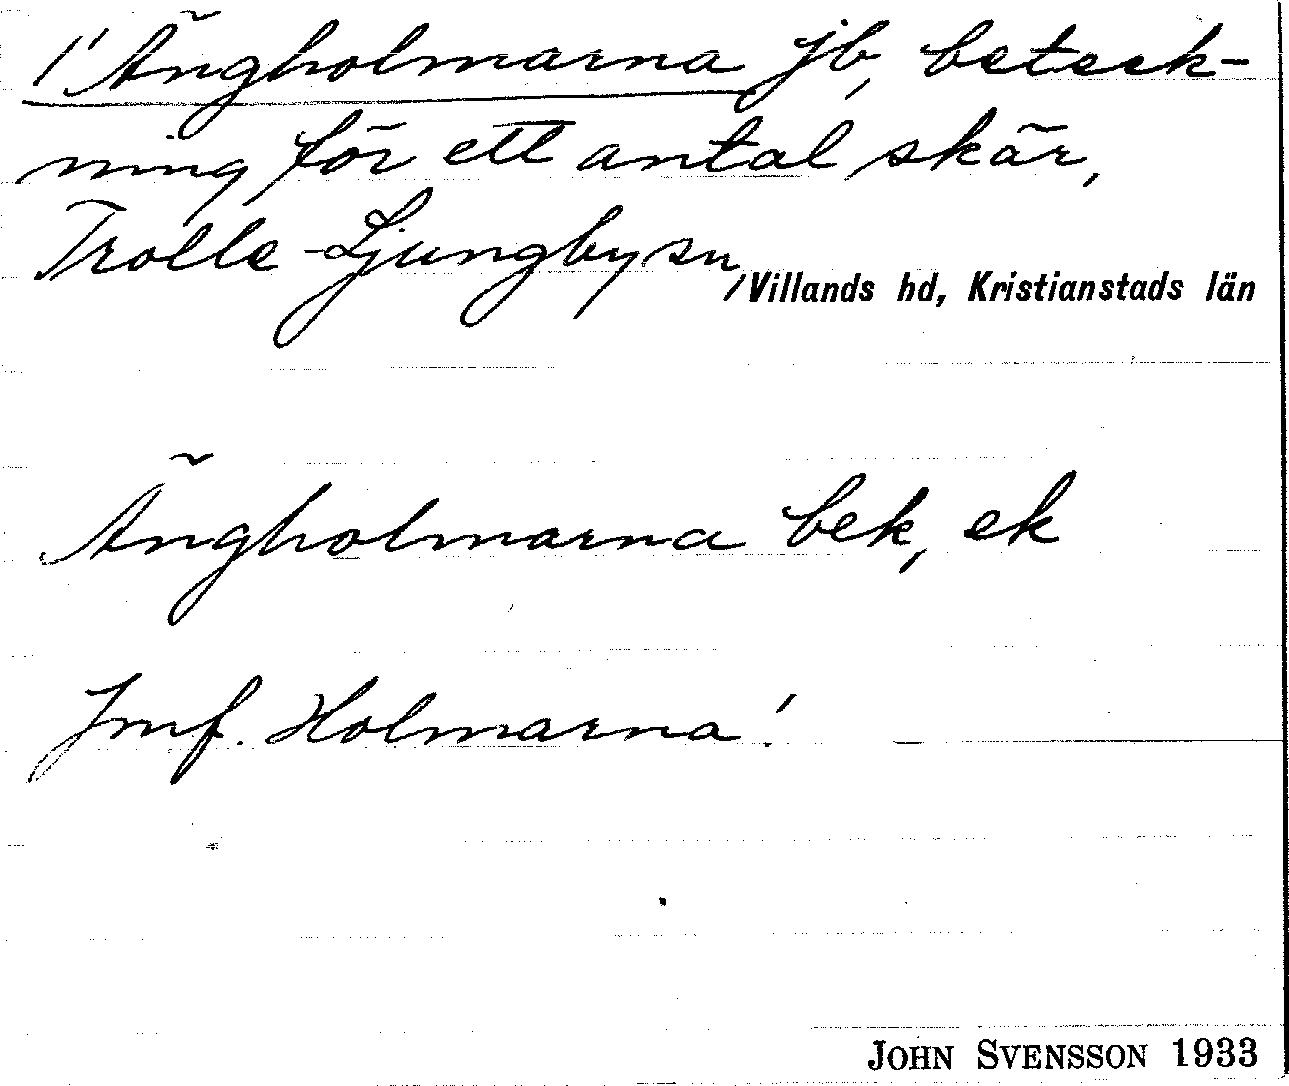 1' Ängholmarna jb, beteck-
ning för ett antal skär,
Trolle-Ljungby sn, Villands hd, Kristianstads län
Ängholmarna bek, ek
Jmf. Holmarna!
JOHN SVENSSON 1933